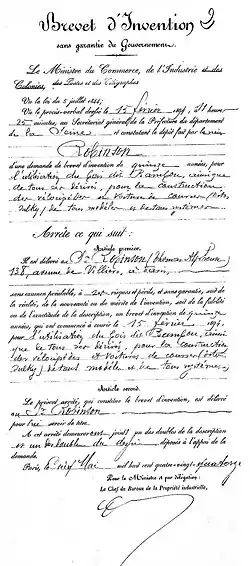 Brevet d'Invention
sans garantie du Gouvernement.
Le Ministre du Commerce, de l'Industrie et des
Colonies, des Postes et des Télégraphes
Vu la loi du 5 juillet 1844;
Vu le procès-verbal dressé le 15 février 189, 3 heures
25 minutes, au Secrétariat général de la Préfecture du département
de la Seine et constatant le dépôt fait par le sieur
Robinson
d'une demande de brevet d'invention de quinze années, pour
l'utilisation du bois de Bambou, ainsi que
de tous ses dérivés, pour la construction
des vélocipèdes et voitures de courses
de tous modèles et de tous systèmes.
Arrête ce qui suit:
Article premier.
Il est délivré au Sr Robinson (Thomas Alphonse)
138, avenue de Villiers, à Paris,
sans examen préalable, à ses risques et périls, et sans garantie, soit de
la réalité, de la nouveauté ou du mérite de l'invention, soit de la fidélité
ou de l'exactitude de la description, un brevet d'invention de quinze
années, qui ont commencé à courir le 15 février 189
pour l'utilisation du bois de Bambou, ainsi
que de tous ses dérivés, pour la construction
des vélocipèdes et voitures de courses
de tous modèles et de tous systèmes.
Article second.
Le présent arrêté, qui constitue le brevet d'invention, est délivré
au Sr Robinson
pour lui servir de titre.
À cet arrêté demeureront joints un des doubles de la description
et un des doubles du dessin déposés à l'appui de la
demande.
Paris, le Mai mil huit cent quatre-vingt-quatorze
Pour le Ministre et par délégation:
Le Chef du Bureau de la Propriété industrielle,